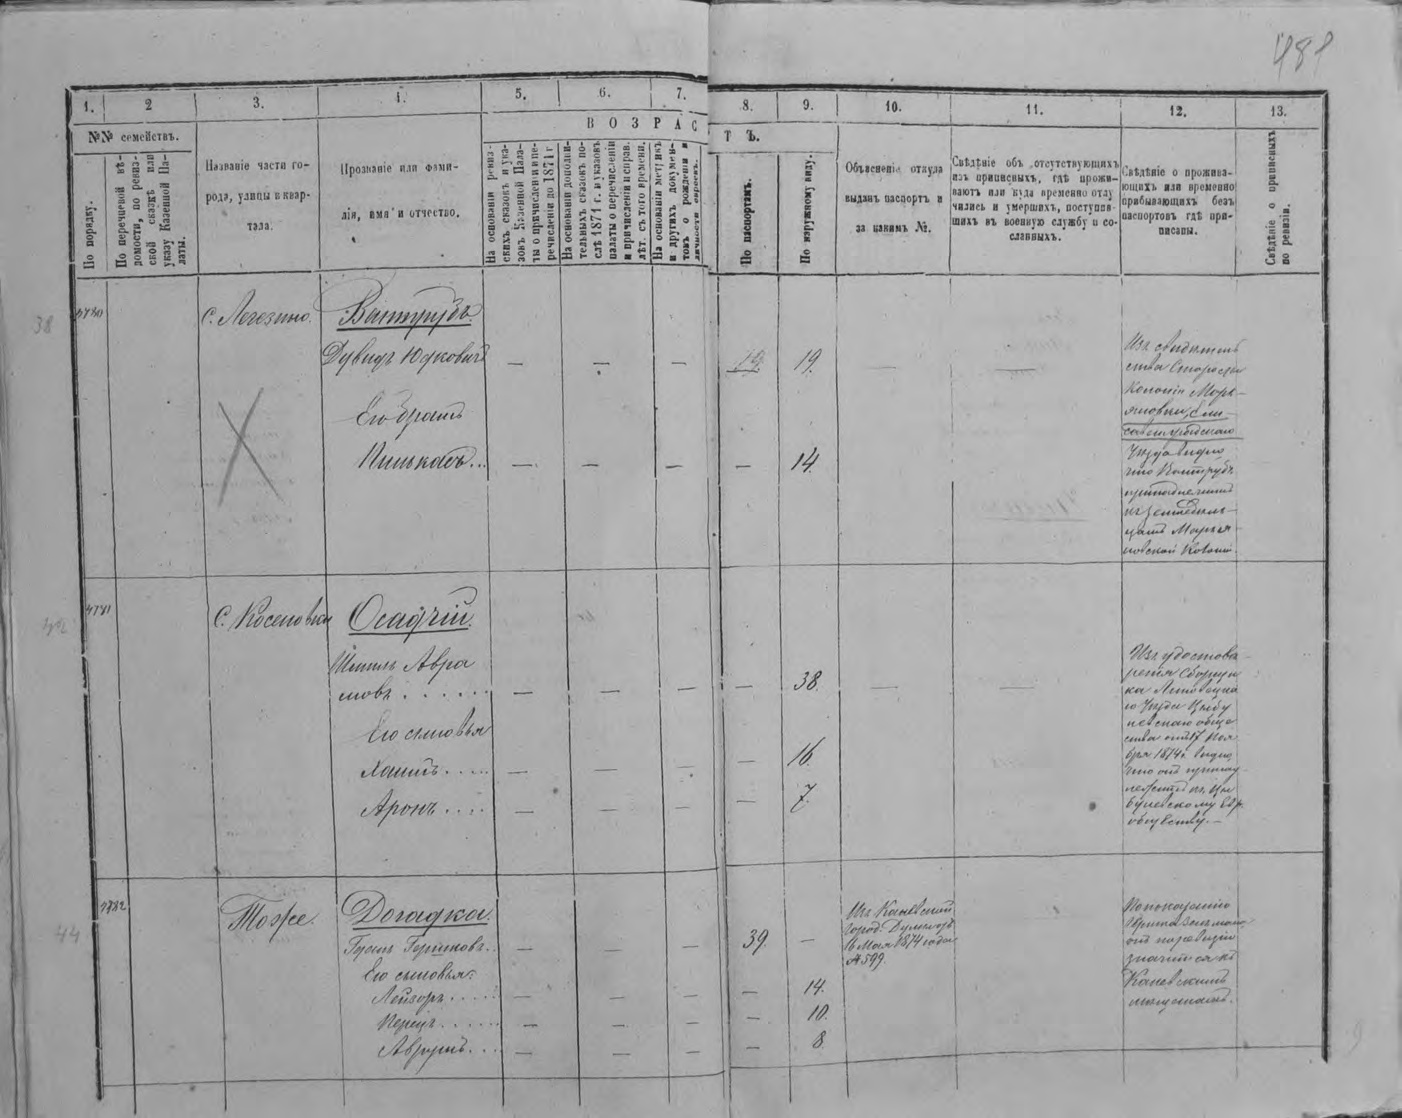 481
1.
2
3.
4.
5.
6.
7.
8.
9.
10.
11.
12.
13.
ВОЗРАСТЪ.
№№ семействъ.
По порядку.
По перечневой вѣ-
домости, по ревиз-
ской сказкѣ или
указу Казенной Па-
латы.
Названіе части го-
рода, улицы и квар-
тала.
Прозваніе или фами-
лія, имя и отчество.
На основаніи ревиз-
скихъ сказокъ и ука-
зовъ Казенной Пала-
ты о причисленіи и пе-
речисленіи до 1871 г
На основаніи дополни-
тельныхъ сказокъ по-
слѣ 1871 г. и указовъ
палаты о перечисленіи
и причисленіи и исправ.
лѣт. съ того времени.
На основаніи метрикъ
и другихъ докумен-
товъ о рожденіи и
личности евреевъ.
По паспортамъ.
По наружному виду.
Объясненіе откуда
выданъ паспортъ и
за какимъ №.
Свѣдѣніе объ отсутствующихъ
изъ приписныхъ, гдѣ прожи-
ваютъ или куда временно отлу
чились и умершихъ, поступив-
шихъ въ военную службу и со-
сланныхъ.
Свѣдѣніе о прожива-
ющихъ или временно
прибывающихъ безъ
паспортовъ гдѣ при-
писаны.
Свѣдѣніе о приписныхъ
по ревизіи.
38
4780
С. Легезино.
Вантрубъ
Дувидъ Юдковичъ — — — 19 19. — —
Его братъ
Пинькасъ... — — — — 14.
Изъ свидѣтель
ства Старосты
Колоніи Марь-
яновки, Ели-
саветградскаго
Уѣзда видно
что Вантрубъ
принадлежитъ
къ земледѣль-
цамъ Марья-
новской Колоніи.
42
4781
С. Косеновка
Осадчій.
Шмиль Авра
мовъ...... — — — — 38. — —
Его сыновья
Хаимъ..... — — — — 16.
Аронъ..... — — — — 7.
Изъ удостовѣ
ренія Сборщи
ка Липовецка
го Уѣзда Цыбу
левскаго обще
ства отъ 17 Ноя
бря 1874 г. видно,
что онъ принад
лежитъ къ Цы
булевскому Евр.
обществу. —
44
4782
Тоже.
Догадка.
Гершковъ.. — — — 39. —
Его сыновья:
Лейзоръ..... — — — — 14.
Перецъ...... — — — — 10.
Аврумъ... — — — — 8.
Изъ Каневской
Город. Думы отъ
6 Мая 1874 года
№ 599
По показанію
онъ по ревизіи
значится къ
Каневскимъ
мѣщанамъ.